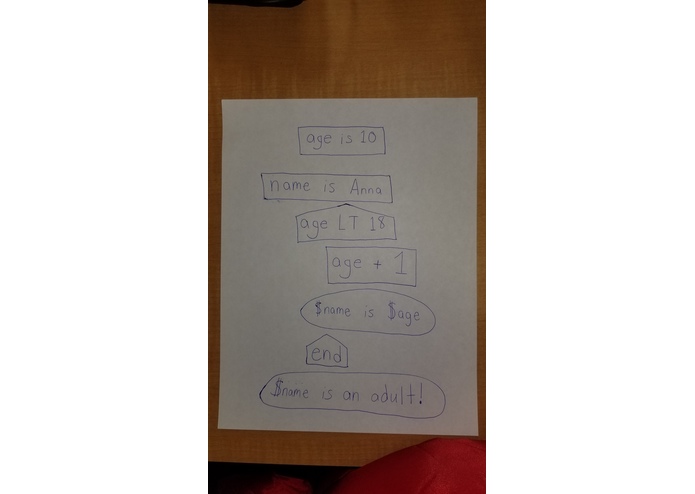 age is 10
name is Anna
age LT 18
age + 1
$name is $age
end
$name is an adult!